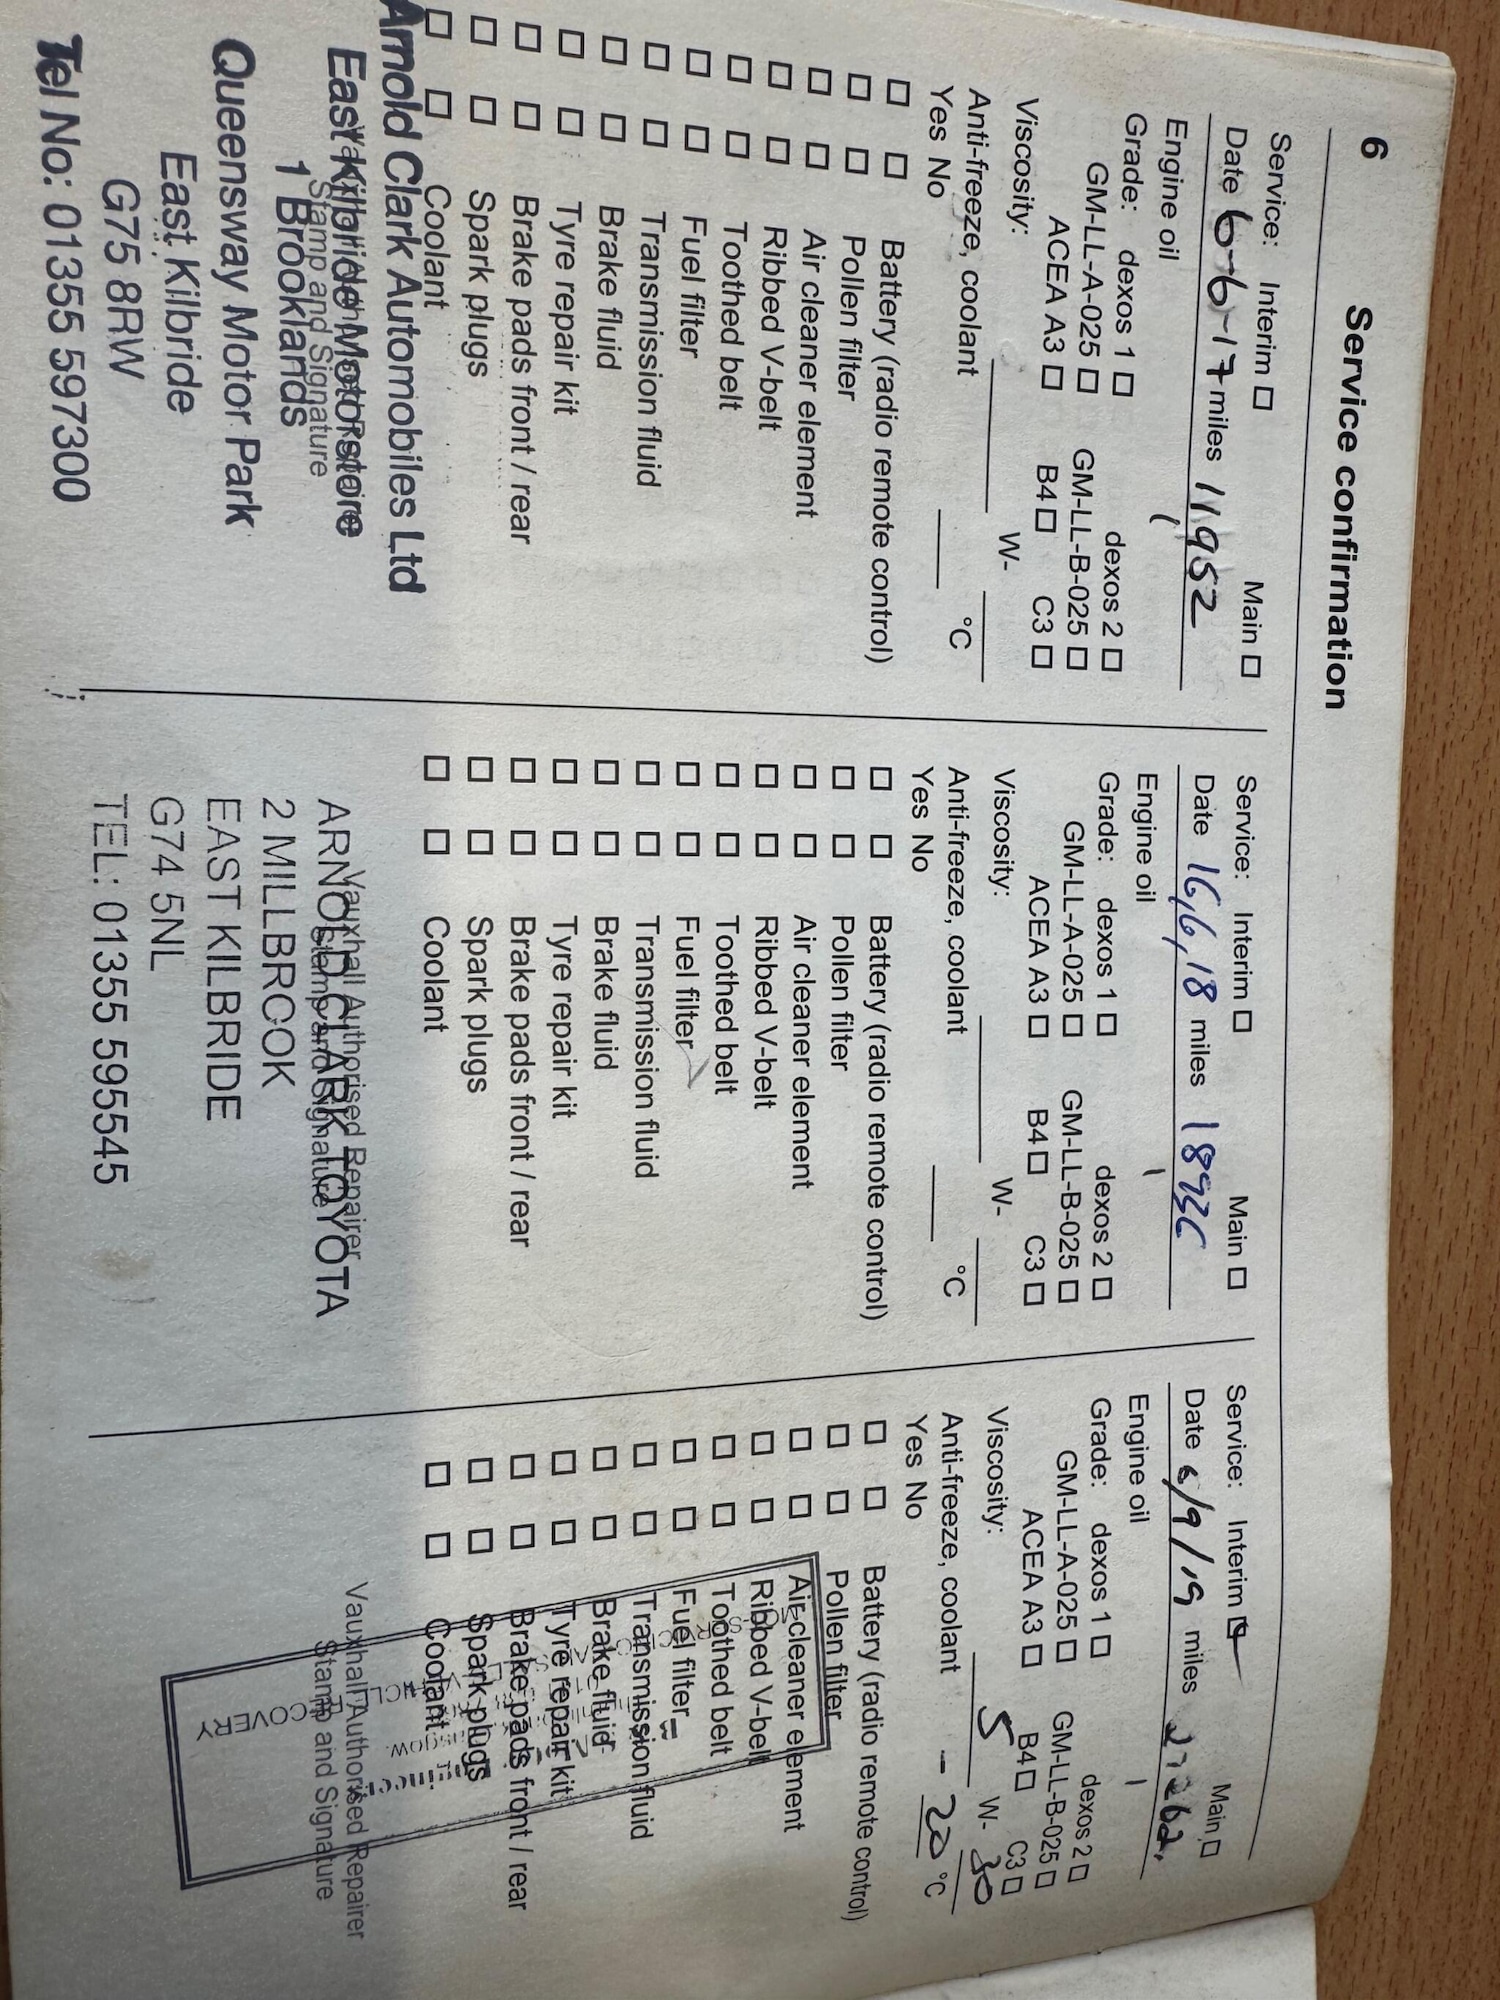 6 Service confirmation
Service: Interim ☐ Main ☐
Date 6-6-17 miles 11,952
Engine oil
Grade: dexos 1 ☐ dexos 2 ☐
GM-LL-A-025 ☐ GM-LL-B-025 ☐
ACEA A3 ☐ B4 ☐ C3 ☐
Viscosity: W-
Anti-freeze, coolant °C
Yes No
☐ ☐ Battery (radio remote control)
☐ ☐ Pollen filter
☐ ☐ Air cleaner element
☐ ☐ Ribbed V-belt
☐ ☐ Toothed belt
☐ ☐ Fuel filter
☐ ☐ Transmission fluid
☐ ☐ Brake fluid
☐ ☐ Tyre repair kit
☐ ☐ Brake pads front / rear
☐ ☐ Spark plugs
☐ ☐ Coolant
Arnold Clark Automobiles Ltd
East Kilbride Motorstore
Stamp and Signature
1 Brooklands
Queensway Motor Park
East Kilbride
G75 8RW
Tel No: 01355 597300
Service: Interim ☐ Main ☐
Date 16,6,18 miles 18936
Engine oil
Grade: dexos 1 ☐ dexos 2 ☐
GM-LL-A-025 ☐ GM-LL-B-025 ☐
ACEA A3 ☐ B4 ☐ C3 ☐
Viscosity: W-
Anti-freeze, coolant °C
Yes No
☐ ☐ Battery (radio remote control)
☐ ☐ Pollen filter
☐ ☐ Air cleaner element
☐ ☐ Ribbed V-belt
☐ ☐ Toothed belt
☐ ☐ Fuel filter
☐ ☐ Transmission fluid
☐ ☐ Brake fluid
☐ ☐ Tyre repair kit
☐ ☐ Brake pads front / rear
☐ ☐ Spark plugs
☐ ☐ Coolant
Vauxhall Authorised Repairer
Stamp and Signature
ARNOLD CLARK TOYOTA
2 MILLBROOK
EAST KILBRIDE
G74 5NL
TEL: 01355 595545
Service: Interim ☑ Main ☐
Date 6/9/19 miles
Engine oil
Grade: dexos 1 ☐ dexos 2 ☐
GM-LL-A-025 ☐ GM-LL-B-025 ☐
ACEA A3 ☐ B4 ☐ C3 ☐
Viscosity: 5 W- 30
Anti-freeze, coolant - 20 °C
Yes No
☐ ☐ Battery (radio remote control)
☐ ☐ Pollen filter
☐ ☐ Air cleaner element
☐ ☐ Ribbed V-belt
☐ ☐ Toothed belt
☐ ☐ Fuel filter
☐ ☐ Transmission fluid
☐ ☐ Brake fluid
☐ ☐ Tyre repair kit
☐ ☐ Brake pads front / rear
☐ ☐ Spark plugs
☐ ☐ Coolant
Vauxhall Authorised Repairer
Stamp and Signature
RECOVERY